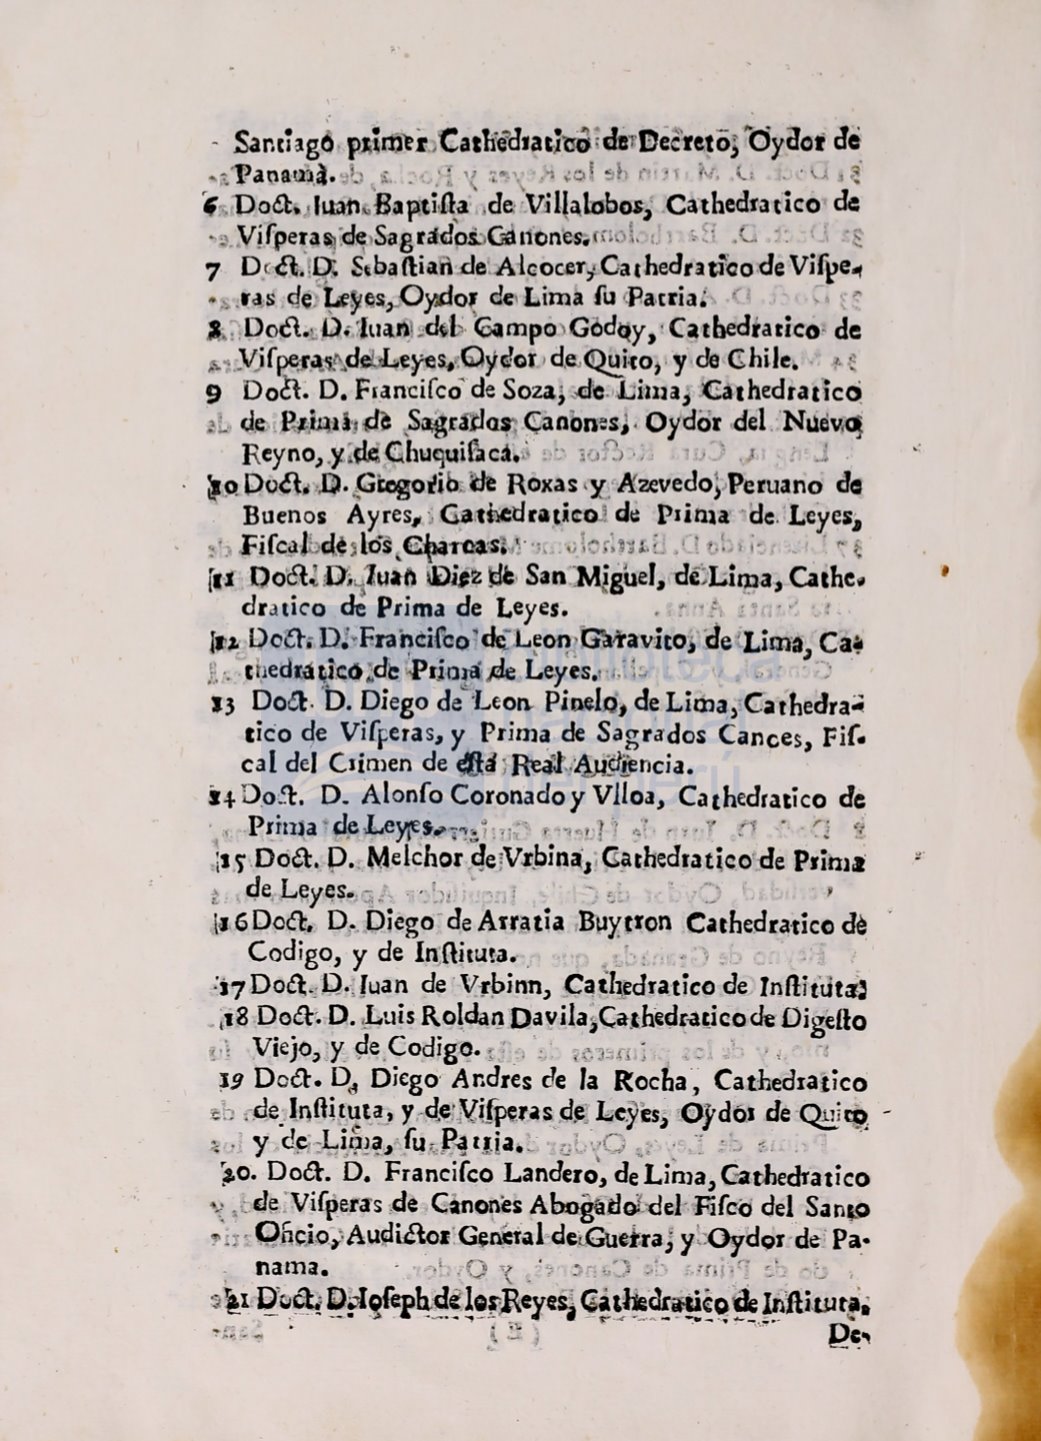 Santiago primer Cathedratico de Decreto, Oydor de
Panamà.
6 Doct. Iuan Baptiſta de Villalobos, Cathedratico de
Viſperas de Sagrados Canones.
7 Doct. D. Sebaſtian de Alcocer, Cathedratico de Viſpe-
ras de Leyes, Oydor de Lima ſu Patria.
8 Doct. D. Iuan del Campo Godoy, Cathedratico de
Viſperas de Leyes, Oydor de Quito, y de Chile.
9 Doct. D. Franciſco de Soza, de Lima, Cathedratico
de Prima de Sagrados Canones, Oydor del Nuevo
Reyno, y de Chuquiſaca.
10 Doct. D. Gregorio de Roxas y Azevedo, Peruano de
Buenos Ayres, Cathedratico de Prima de Leyes,
Fiſcal de los Charcas.
11 Doct. D. Iuan Diez de San Miguel, de Lima, Cathe-
dratico de Prima de Leyes.
12 Doct. D. Franciſco de Leon Garavito, de Lima, Ca-
thedratico de Prima de Leyes.
13 Doct. D. Diego de Leon Pinelo, de Lima, Cathedra-
tico de Viſperas, y Prima de Sagrados Cances, Fiſ-
cal del Crimen de eſta Real Audiencia.
14 Doct. D. Alonſo Coronado y Vlloa, Cathedratico de
Prima de Leyes.
15 Doct. D. Melchor de Vrbina, Cathedratico de Prima
de Leyes.
16 Doct. D. Diego de Arratia Buytron Cathedratico de
Codigo, y de Inſtituta.
17 Doct. D. Juan de Vrbinn, Cathedratico de Inſtituta.
18 Doct. D. Luis Roldan Davila, Cathedratico de Digeſto
Viejo, y de Codigo.
19 Doct. D. Diego Andres de la Rocha, Cathedratico
de Inſtituta, y de Viſperas de Leyes, Oydor de Quito
y de Lima, ſu Patria.
20. Doct. D. Franciſco Landero, de Lima, Cathedratico
de Viſperas de Canones Abogado del Fiſco del Santo
Oficio, Audictor General de Guerra, y Oydor de Pa-
nama.
21 Doct. D. Ioſeph de los Reyes, Cathedratico de Inſtituta,
De-